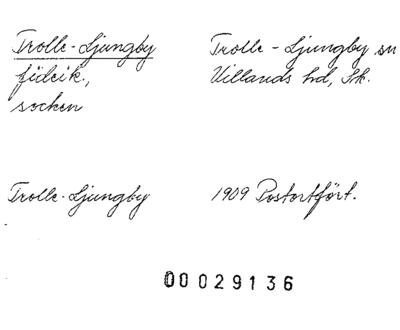 Trolle-Ljungby
fideik.,
socken
Trolle-Ljungby sn
Villands hd, Sk.
Trolle-Ljungby
1909 Postortfört.
00029136